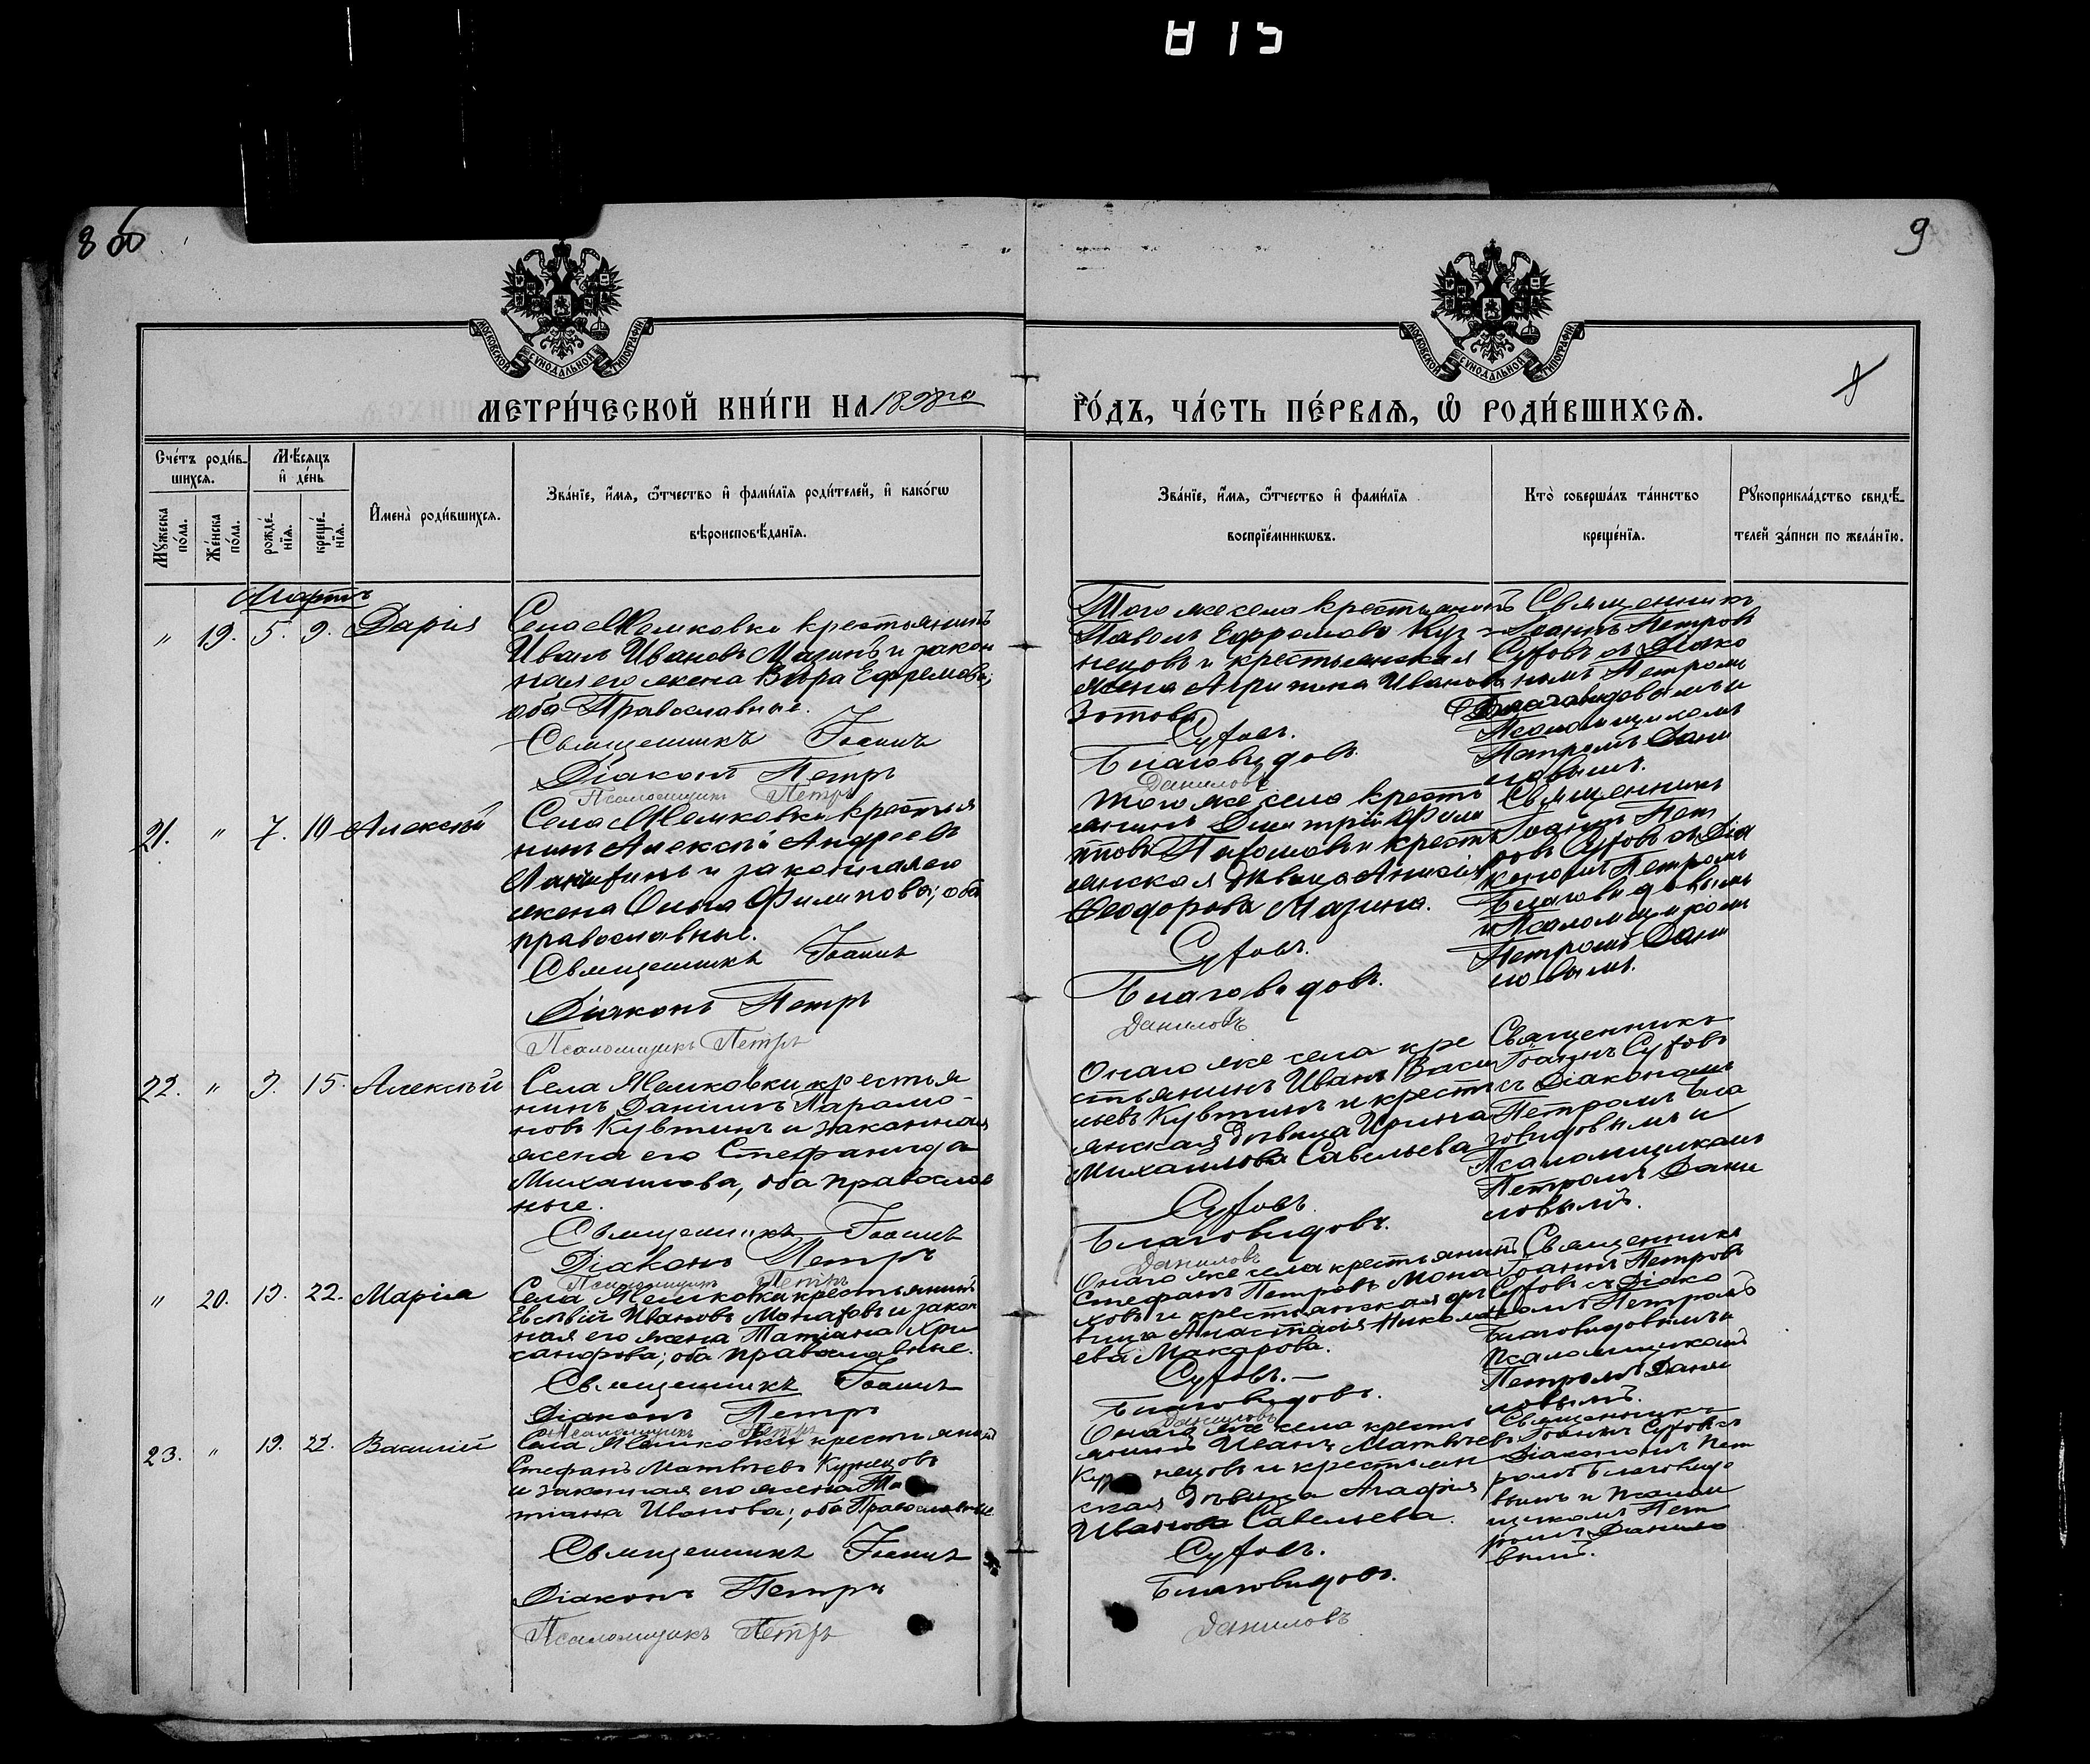 815
8 об
9
МОСКОВСКОЙ СѴНОДАЛЬНОЙ ТИПОГРАФІИ
МОСКОВСКОЙ СѴНОДАЛЬНОЙ ТИПОГРАФІИ
МЕТРИ́ЧЕСКОЙ КНИ́ГИ НА 1898го ГО́ДЪ, ЧА́СТЬ ПЕ́РВАѦ, Ѽ РОДИ́ВШИХСѦ.
Сче́тъ роди́в-
шихсѧ.
Мѣ́сѧцъ
и де́нь
Мꙋ́жеска
по́ла.
Же́нска
по́ла.
рожде́-
нїѧ.
креще́-
нїѧ.
Имена̀ роди́вшихсѧ.
Зва́нїе, и́мѧ, ѻ́тчество и фами́лїѧ роди́телей, и како́гѡ
вѣроисповѣ́данїѧ.
Зва́нїе, и́мѧ, ѻ́тчество и фами́лїѧ
воспрїе́мникѡвъ.
Кто̀ соверша́лъ та́инство
креще́нїѧ.
Рꙋкоприкла́дство свидѣ́-
телей за́писи по жела́нїю.
Мартъ
" 19. 5. 9. Дарія
Села Мемковки крестьянинъ
Иванъ Ивановъ Мазинъ и закон
ная его жена Вѣра Ефремова;
оба Православные.
Священникъ Іоаннъ
Діаконъ Петръ
Псаломщикъ Петръ
Того же села крестьянинъ
Павелъ Ефремовъ Куз-
нецовъ и крестьянская
жена Агрипина Иванова
Зотова
Суховъ.
Благовидовъ
Даниловъ
Священникъ
Іоаннъ Петровъ
Суховъ съ Діако
номъ Петромъ
Благовидовымъ и
Псаломщикомъ
Петромъ Дани
ловымъ.
21. " 7. 10 Алексѣй
Села Мемковки крестья
нинъ Алексѣй Андреевъ
и законная его
жена Ольга Филипова; оба
православные.
Священникъ Іоаннъ
Діаконъ Петръ
Псаломщикъ Петръ
Того же села кресть
янинъ Димитрій Фили
повъ и кресть
янская дѣвица Анисія
Ѳеодорова Мазина.
Суховъ.
Благовидовъ.
Даниловъ
Священникъ
Іоаннъ Пет
ровъ Суховъ съ Діа
кономъ Петромъ
Благовидовымъ
и Псаломщикомъ
Петромъ Дани
ловымъ.
22. " 9. 15. Алексѣй
Села Мемковки крестья
нинъ Даніилъ Парамо-
новъ Кувтинъ и законная
жена его Стефанида
Михаилова, оба православ
ные.
Священникъ Іоаннъ
Діаконъ Петръ
Псаломщикъ Петръ
Онаго же села кре
стьянинъ Иванъ Васи
льевъ Кувтинъ и крестъ
янская дѣвица Ирина
Михаилова Савельева
Суховъ.
Благовидовъ.
Даниловъ
Священникъ
Іоаннъ Суховъ
съ Діакономъ
Петромъ Бла
говидовымъ и
Псаломщикомъ
Петромъ Дани
ловымъ.
" 20. 19. 22. Марія
Села Мемковки крестьянинъ
Евсѣвій Ивановъ Монаховъ и закон
ная его жена Татіана Хри
санфова; оба православные.
Священникъ Іоаннъ
Діаконъ Петръ
Псаломщикъ Петръ
Онаго же села крестьянинъ
Стефанъ Петровъ Мона
ховъ и крестьянская дѣ
вица Анастасія Никола
ева Макарова.
Суховъ.-
Благовидовъ.
Даниловъ
Священникъ
Іоаннъ Петровъ
Суховъ съ Діако
номъ Петромъ
Благовидовымъ и
псаломщикомъ
Петромъ Дани
ловымъ.
23. " 19. 22. Василій
Села Мемковки крестьянинъ
Стефанъ Матвѣевъ Кузнецовъ
и законная его жена Та
тіана Иванова; оба Православные
Священникъ Іоаннъ
Діаконъ Петръ
Псаломщикъ Петръ
Онаго же села кресть
янинъ Иванъ Матвѣевъ
Куз нецовъ и крестьян
ская дѣвица Агафія
Иванова Савельева.
Суховъ.
Благовидовъ.
Даниловъ
Священникъ
Іоаннъ Суховъ съ
Діакономъ Пет
ромъ Благовидо
вымъ и псалом
щикомъ Пет
ромъ Данило
вымъ.